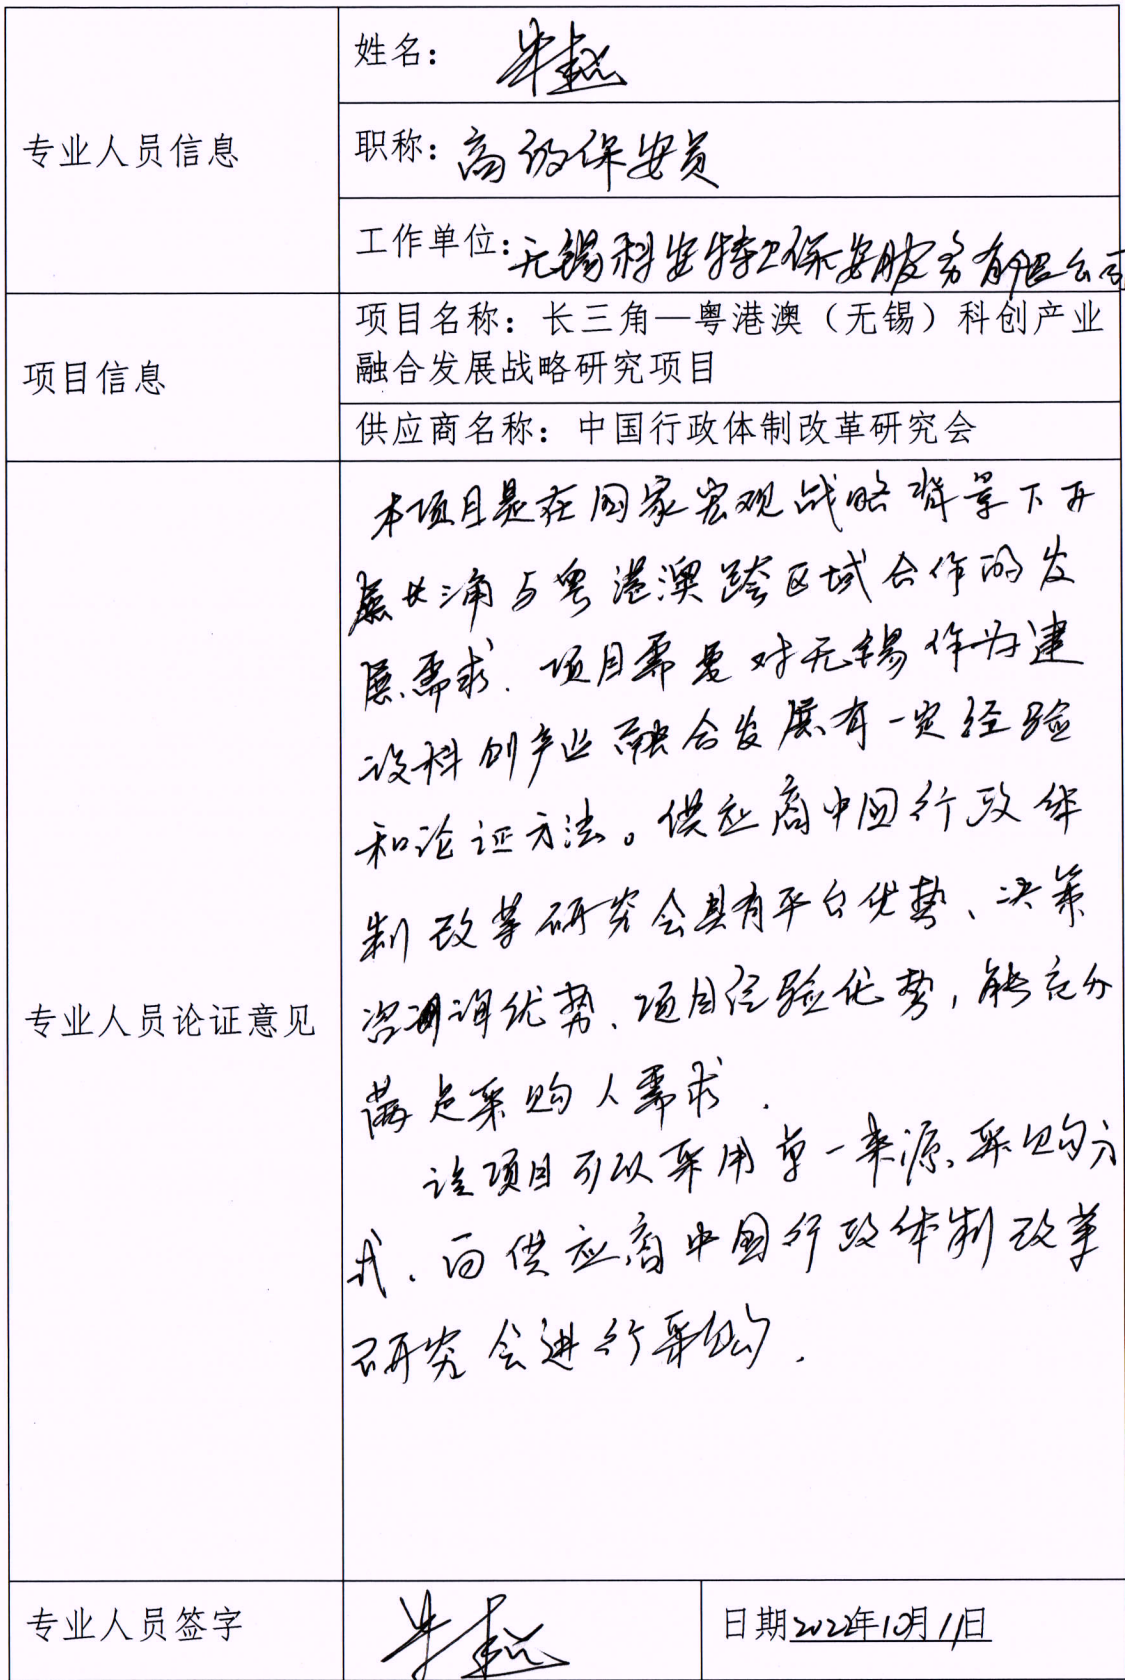 专业人员信息
姓名：
职称：高级保安员
工作单位：无锡科安特卫保安服务有限公司
项目信息
项目名称：长三角—粤港澳（无锡）科创产业
融合发展战略研究项目
供应商名称：中国行政体制改革研究会
专业人员论证意见
本项目是在国家宏观战略背景下开
展长三角与粤港澳跨区域合作的发
展需求．项目需要对无锡作为建
设科创产业融合发展有一定经验
和论证方法。供应商中国行政体
制改革研究会具有平台优势、决策
咨询优势、项目经验优势，能充分
满足采购人需求．
该项目可以采用单一来源采购方
式．向供应商中国行政体制改革
研究会进行采购．
专业人员签字
日期2022年10月11日